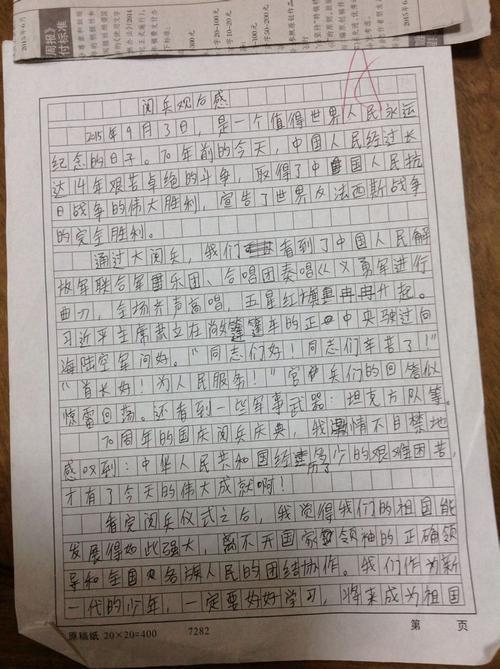 2015年6月
周报》
付标准
字20-100元
字10-20元
字50-200元
2015年6
A
阅兵观后感
2015年9月3日，是一个值得世界人民永远
纪念的日子。70年前的今天，中国人民经过长
达14年艰苦卓绝的斗争，取得了中国人民抗
日战争的伟大胜利，宣告了世界反法西斯战争
的完全胜利。
通过大阅兵，我们看到了中国人民解
放军联合军乐团、合唱团奏唱《义勇军进行
曲》，全场齐声高唱，五星红旗冉冉升起。
习近平主席站立在敞篷车的正中央驶过向
海陆空军问好。“同志们好！同志们辛苦了！”
“首长好！为人民服务！”官兵们的回答似
惊雷回荡。还看到一些军事武器：坦克方队等。
70周年的国庆阅兵庆典，我激情不自禁地
感叹到：中华人民共和国经历了多少的艰难困苦，
才有了今天的伟大成就啊！
看完阅兵仪式之后，我觉得我们的祖国能
发展得如此强大，离不开国家领袖的正确领
导和全国各族人民的团结协作。我们作为新
一代的少年，一定要好好学习，将来成为祖国
原稿纸 20×20=400 7282 第 页